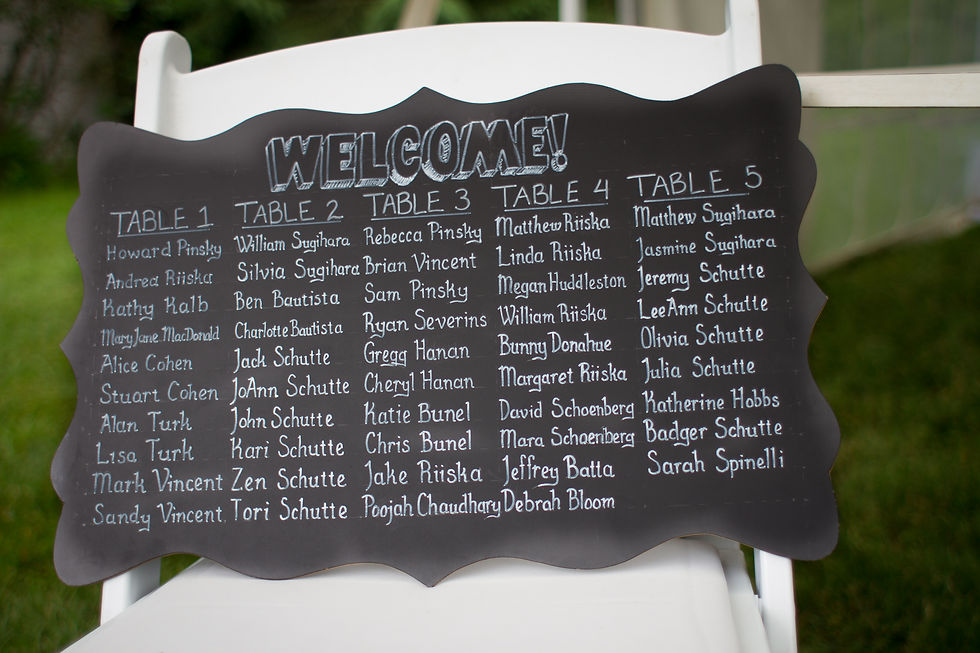 WELCOME!
TABLE 1
Howard Pinsky
Andrea Riiska
Kathy Kalb
MaryJane MacDonald
Alice Cohen
Stuart Cohen
Alan Turk
Lisa Turk
Mark Vincent
Sandy Vincent
TABLE 2
William Sugihara
Silvia Sugihara
Ben Bautista
Charlotte Bautista
Jack Schutte
JoAnn Schutte
John Schutte
Kari Schutte
Zen Schutte
Tori Schutte
TABLE 3
Rebecca Pinsky
Brian Vincent
Sam Pinsky
Ryan Severins
Gregg Hanan
Cheryl Hanan
Katie Bunel
Chris Bunel
Jake Riiska
Poojah Chaudhary
TABLE 4
Matthew Riiska
Linda Riiska
Megan Huddleston
William Riiska
Bunny Donahue
Margaret Riiska
David Schoenberg
Mara Schoenberg
Jeffrey Batta
Debrah Bloom
TABLE 5
Matthew Sugihara
Jasmine Sugihara
Jeremy Schutte
LeeAnn Schutte
Olivia Schutte
Julia Schutte
Katherine Hobbs
Badger Schutte
Sarah Spinelli